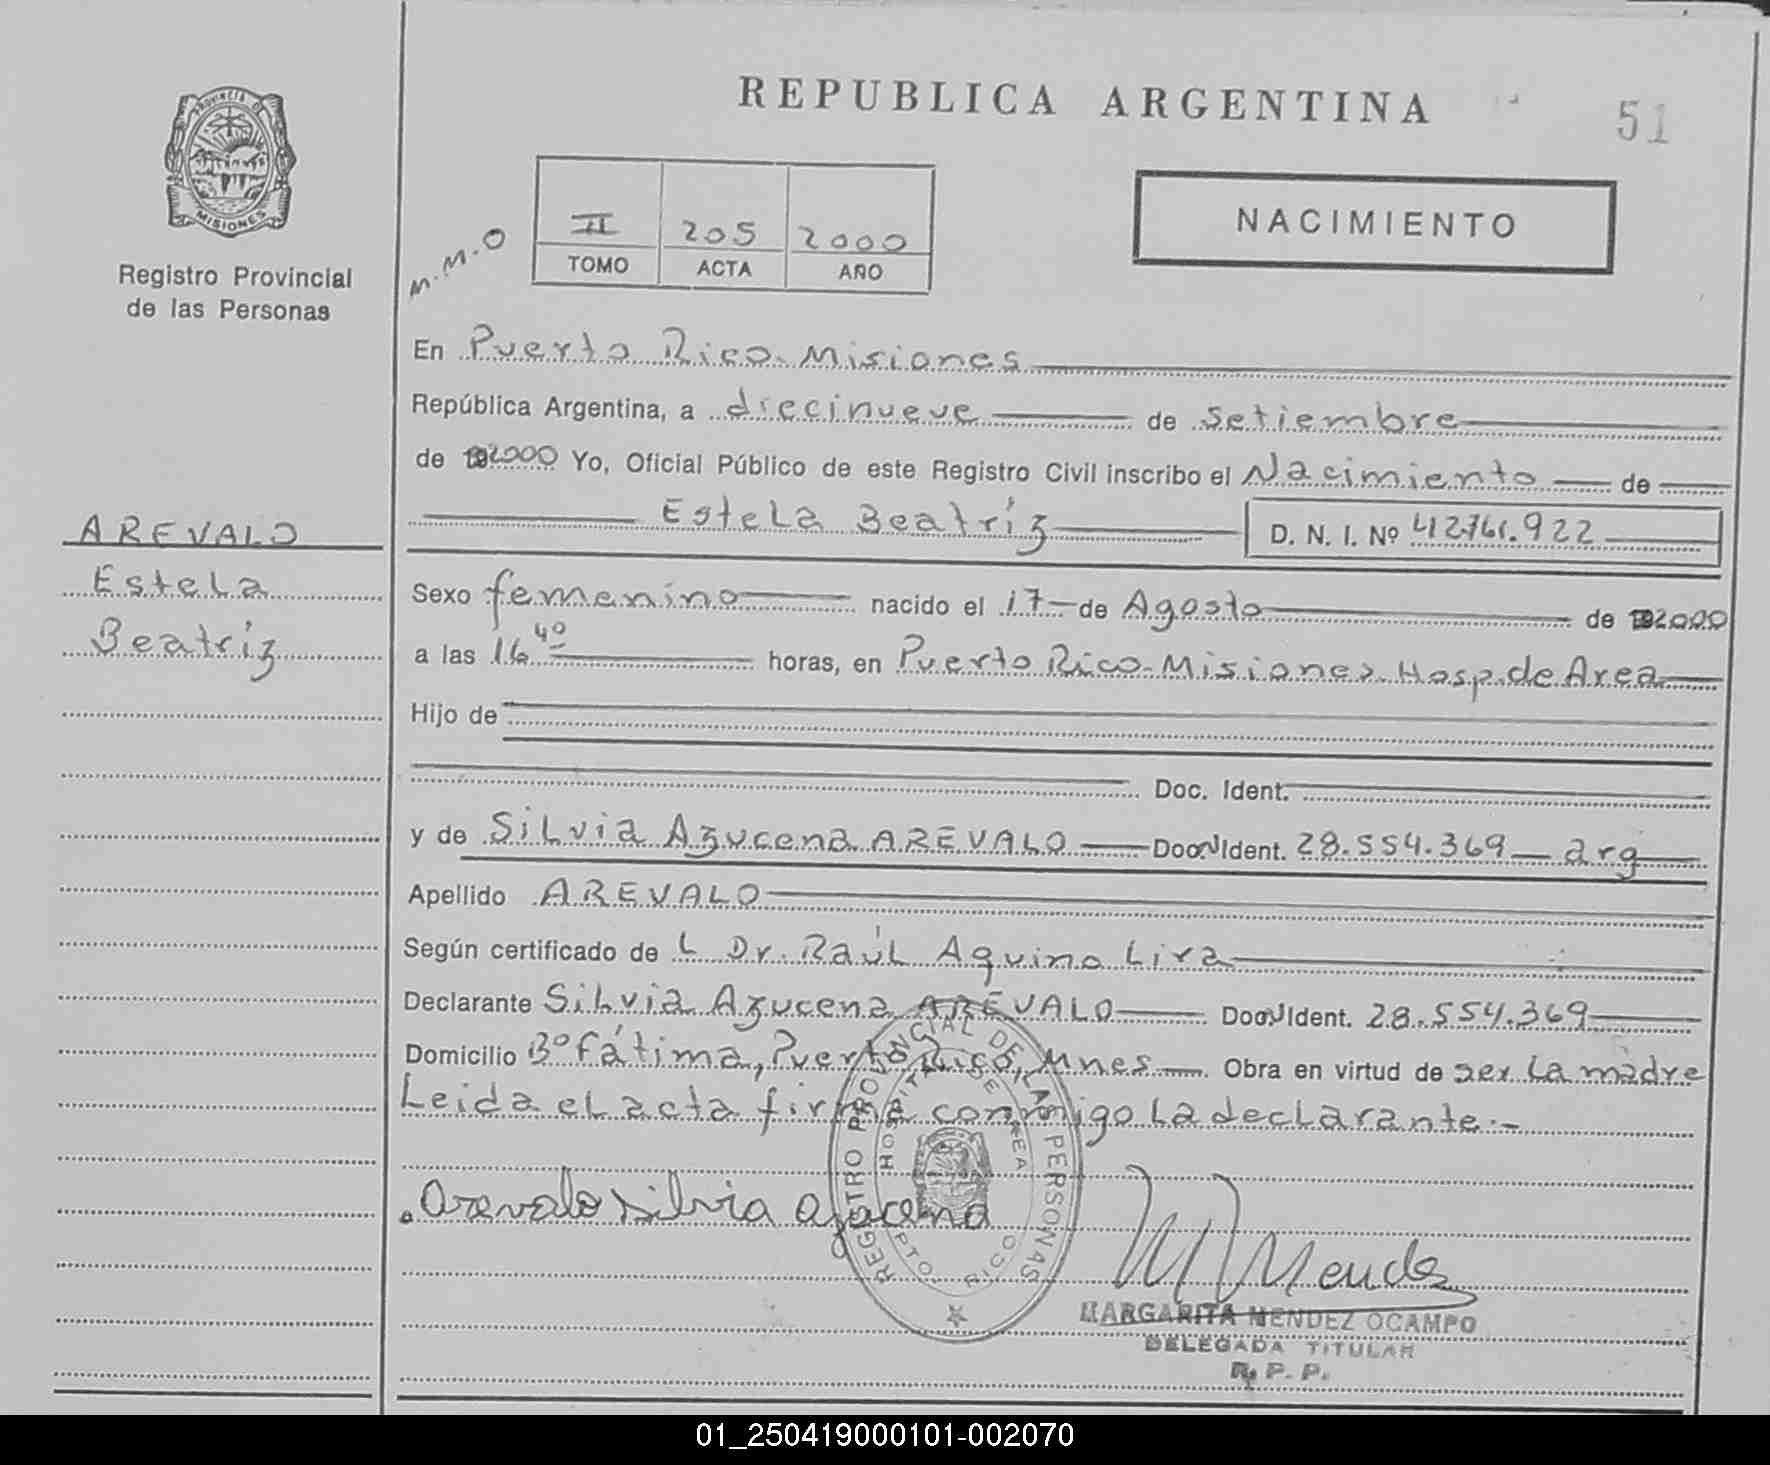 REPUBLICA ARGENTINA
51
PROVINCIA DE
MISIONES
Registro Provincial
de las Personas
M.M.O
II 205 2000
TOMO ACTA AÑO
NACIMIENTO
En Puerto Rico - Misiones
República Argentina, a diecinueve de Setiembre
de 2000 Yo, Oficial Público de este Registro Civil inscribo el Nacimiento de
Estela Beatríz D. N. I. Nº 42.761.922
AREVALO
Estela
Beatríz
Sexo femenino nacido el 17 de Agosto de 2000
a las 16 40 horas, en Puerto Rico - Misiones. Hosp. de Area
Hijo de
Doc. Ident.
y de Silvia Azucena AREVALO Doc. Ident. 28.554.369 arg
Apellido AREVALO
Según certificado de L Dr. Raúl Aquino Lira
Declarante Silvia Azucena AREVALO Doc. Ident. 28.554.369
Domicilio Bº Fátima, Puerto Rico, Mnes Obra en virtud de ser La madre
Leida el acta firma conmigo La declarante.-
REGISTRO PROVINCIAL DE LAS PERSONAS
HOSPITAL DE AREA
PTO. RICO
Arevalo Silvia Azucena
M Mendez
MARGARITA MENDEZ OCAMPO
DELEGADA TITULAR
R. P. P.
01_250419000101-002070